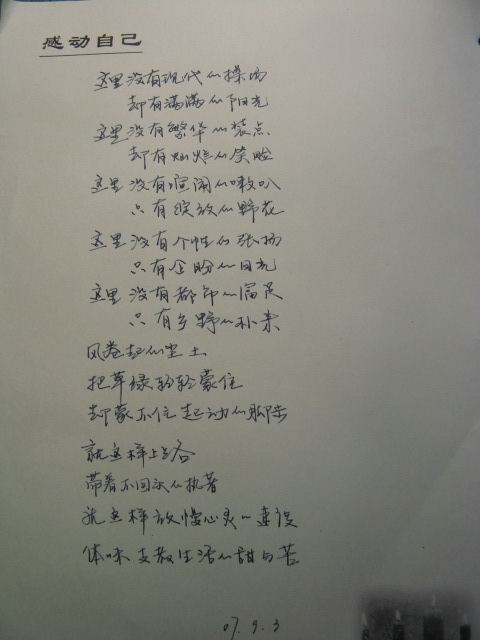 感动自己
这里没有现代的操场
却有满满的阳光
这里没有繁华的装点
却有灿烂的笑脸
这里没有喧闹的喇叭
只有绽放的野花
这里没有个性的张扬
只有企盼的目光
这里没有都市的富足
只有乡野的朴素
风卷起的尘土
把草绿轻轻蒙住
却蒙不住起动的脚步
就这样上路
带着不回头的执著
就这样放慢心灵的速度
体味支教生活的甜与苦
07.9.3